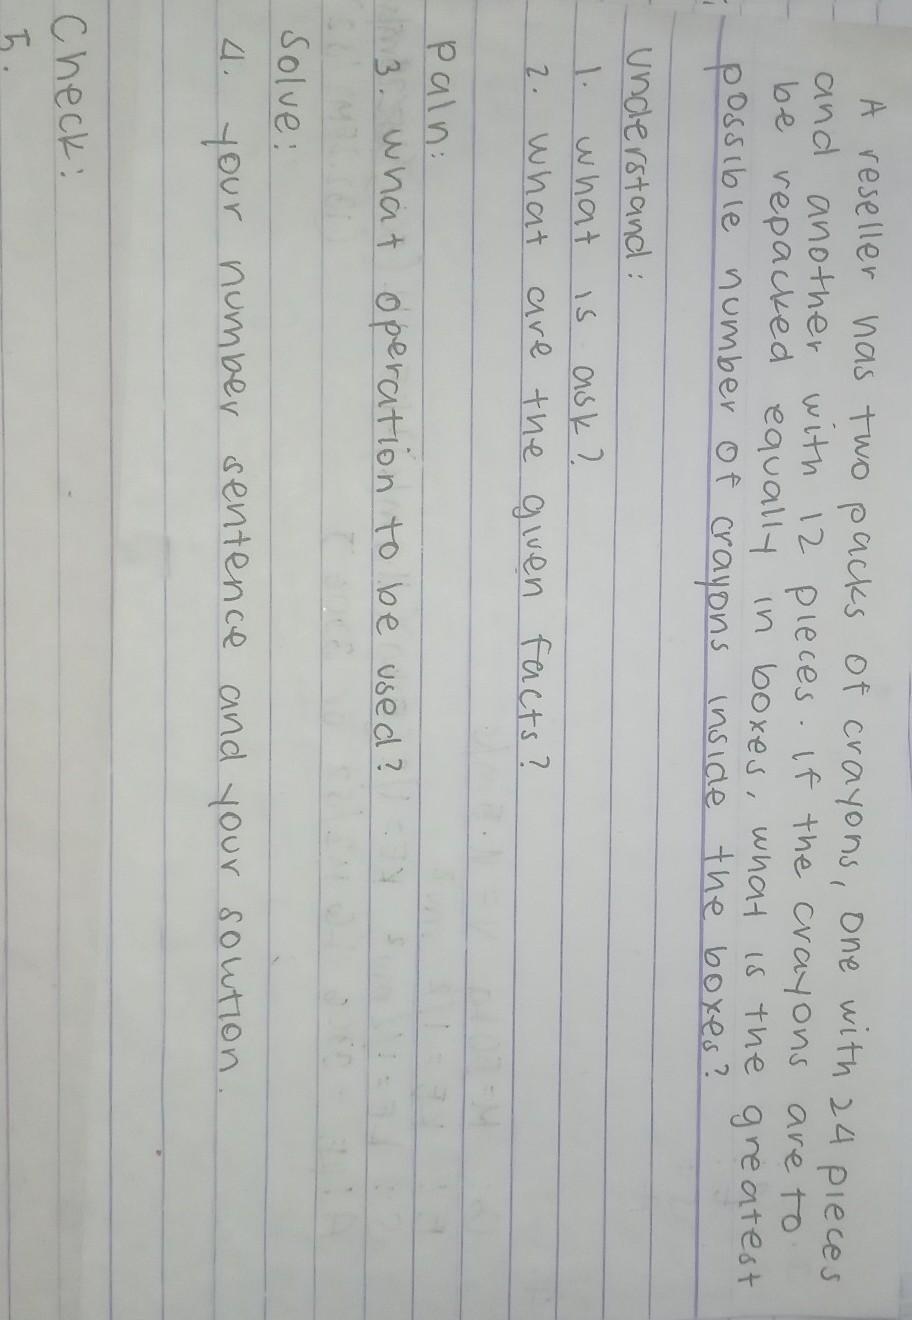 A reseller has two packs of crayons, one with 24 pieces
and another with 12 pieces. if the crayons are to
be repacked equally in boxes, what is the greatest
possible number of crayons inside the boxes?
understand:
1. what is ask?
2. what are the given facts?
paln:
3. what operation to be used?
solve:
4. your number sentence and your soution.
Check:
5.